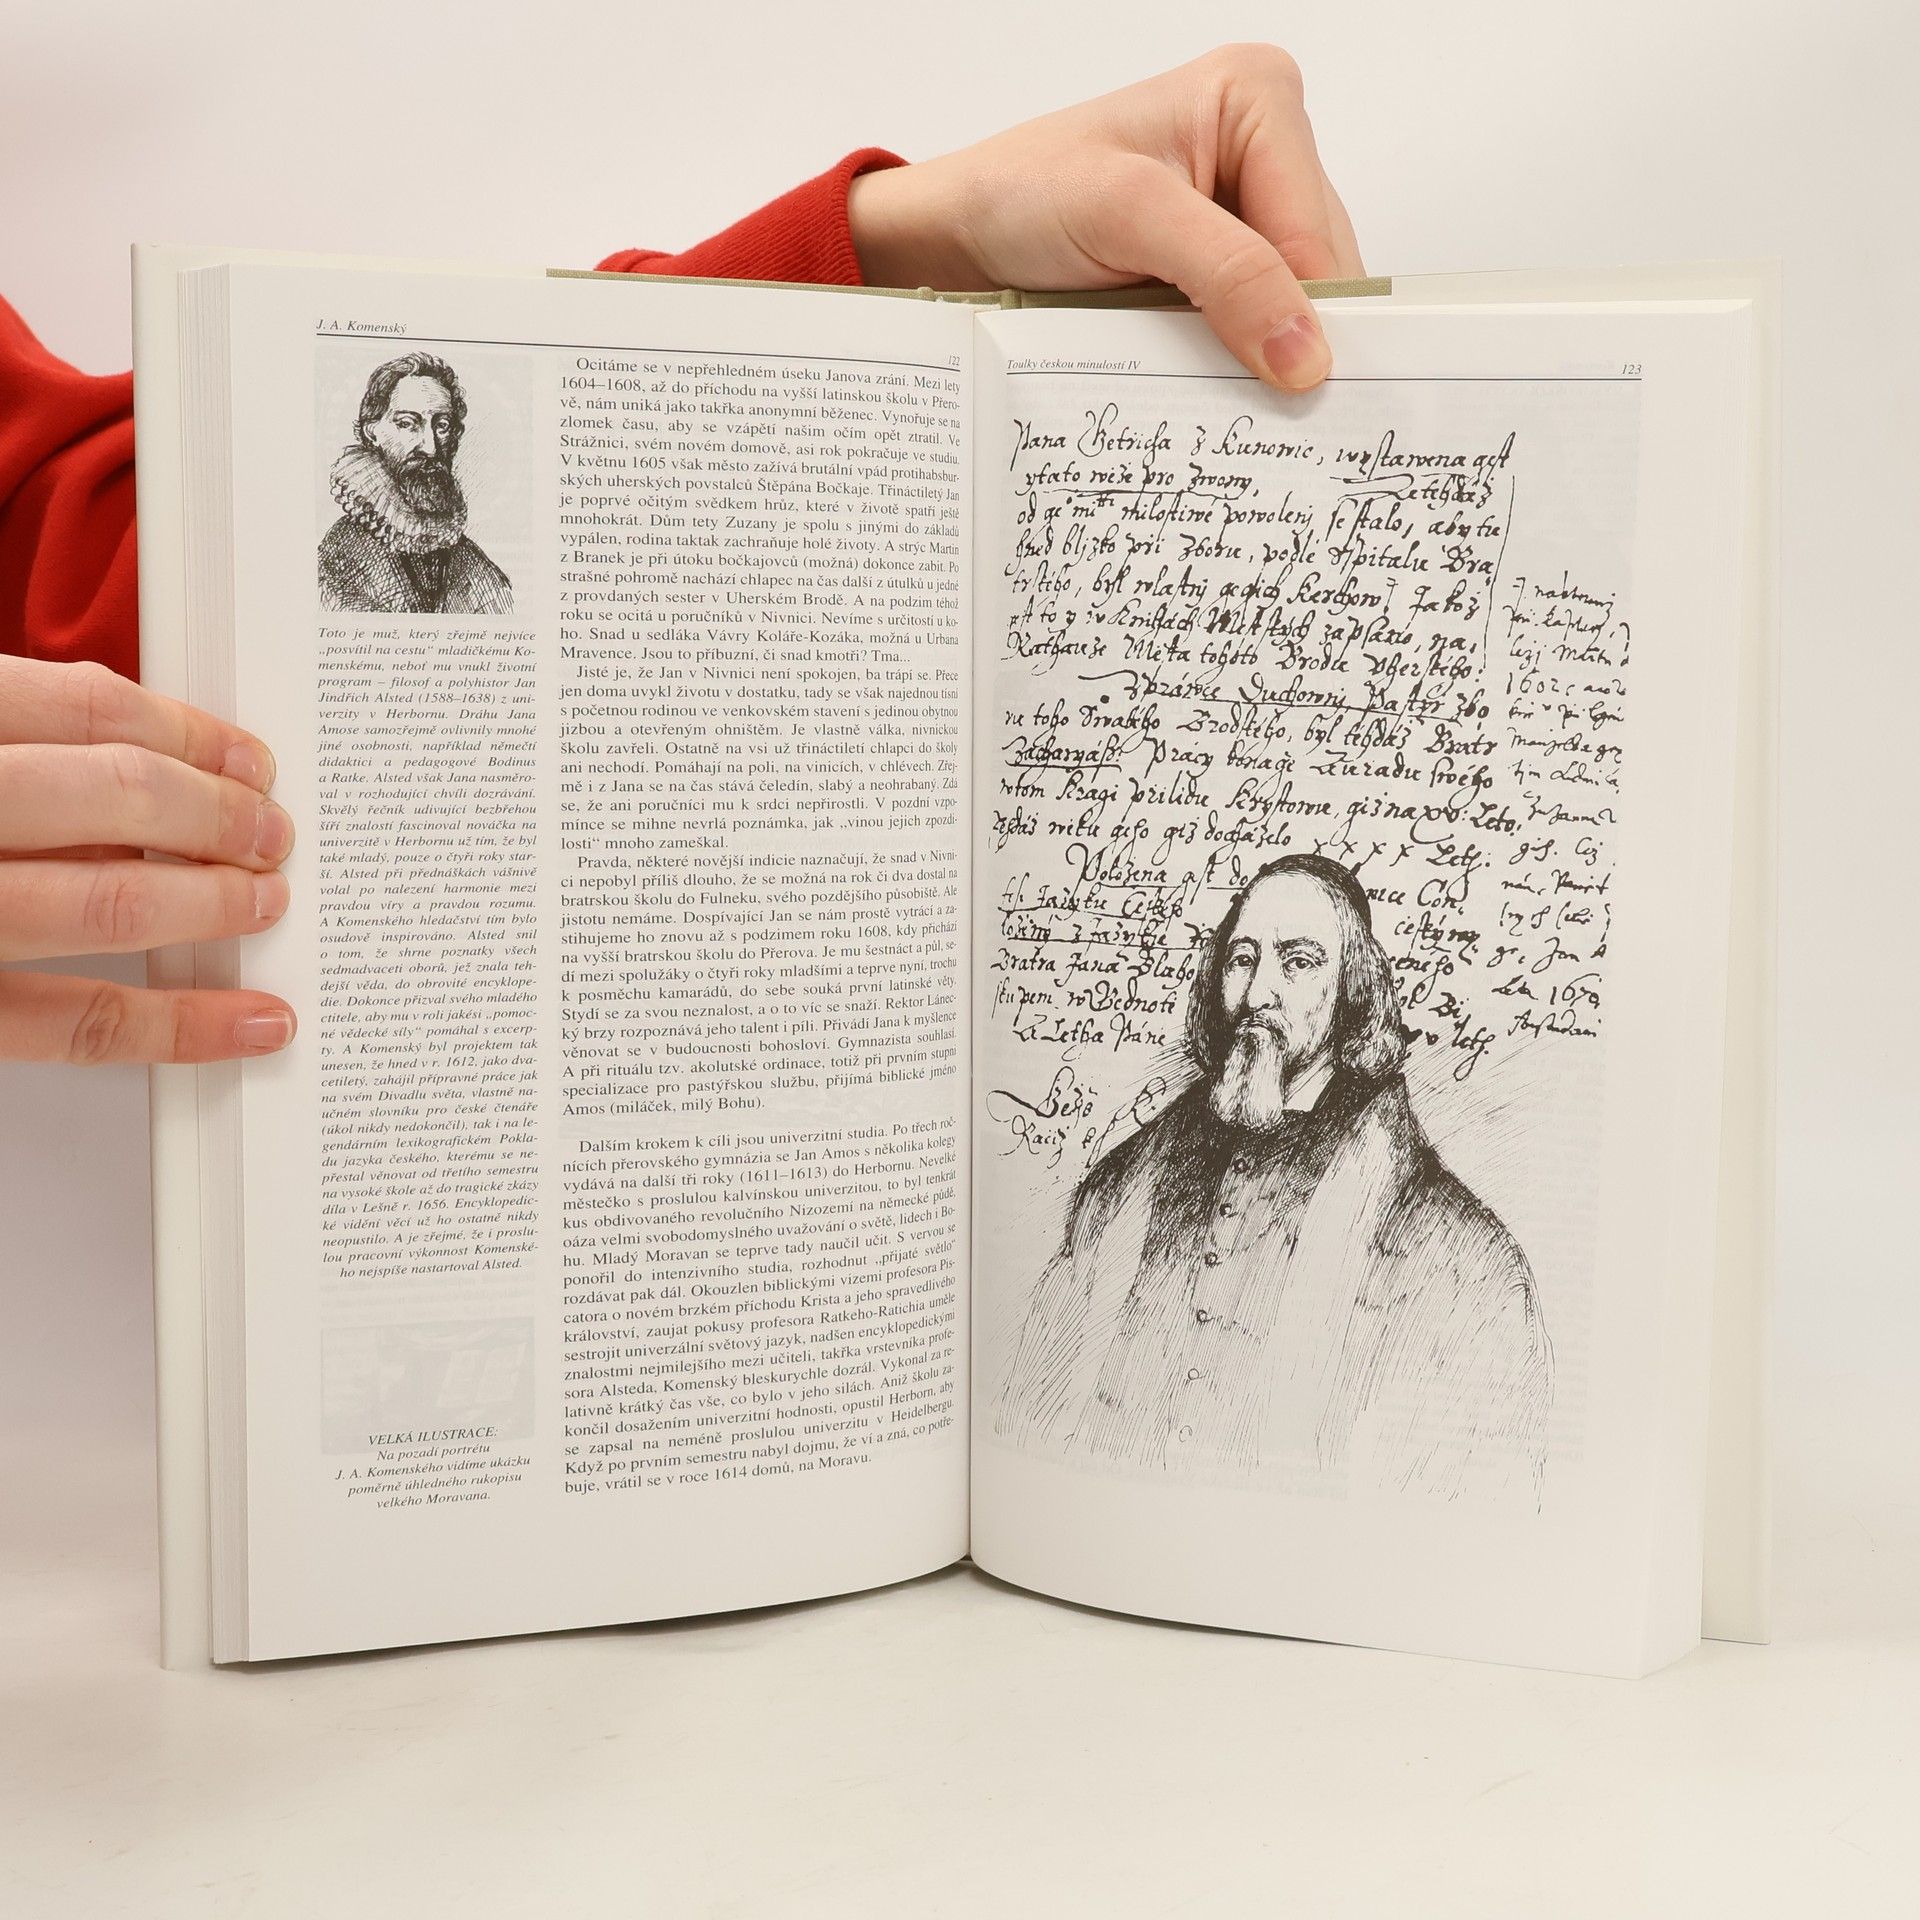 J. A. Komenský
122
Toto je muž, který zřejmě nejvíce
„posvítil na cestu“ mladičkému Ko-
menskému, neboť mu vnukl životní
program – filosof a polyhistor Jan
Jindřich Alsted (1588–1638) z uni-
verzity v Herbornu. Dráhu Jana
Amose samozřejmě ovlivnily mnohé
jiné osobnosti, například němečtí
didaktici a pedagogové Bodinus
a Ratke. Alsted však Jana nasměro-
val v rozhodující chvíli dozrávání.
Skvělý řečník udivující bezbřehou
šíří znalostí fascinoval nováčka na
univerzitě v Herbornu už tím, že byl
také mladý, pouze o čtyři roky star-
ší. Alsted při přednáškách vášnivě
volal po nalezení harmonie mezi
pravdou víry a pravdou rozumu.
A Komenského hledačství tím bylo
osudově inspirováno. Alsted snil
o tom, že shrne poznatky všech
sedmadvaceti oborů, jež znala teh-
dejší věda, do obrovité encyklope-
die. Dokonce přizval svého mladého
ctitele, aby mu v roli jakési „pomoc-
né vědecké síly“ pomáhal s excerp-
ty. A Komenský byl projektem tak
unesen, že hned v r. 1612, jako dva-
cetiletý, zahájil přípravné práce jak
na svém Divadlu světa, vlastně na-
učném slovníku pro české čtenáře
(úkol nikdy nedokončil), tak i na le-
gendárním lexikografickém Pokla-
du jazyka českého, kterému se ne-
přestal věnovat od třetího semestru
na vysoké škole až do tragické zkázy
díla v Lešně r. 1656. Encyklopedic-
ké vidění věcí už ho ostatně nikdy
neopustilo. A je zřejmé, že i proslu-
lou pracovní výkonnost Komenské-
ho nejspíše nastartoval Alsted.
VELKÁ ILUSTRACE:
Na pozadí portrétu
J. A. Komenského vidíme ukázku
poměrně úhledného rukopisu
velkého Moravana.
Ocitáme se v nepřehledném úseku Janova zrání. Mezi lety
1604–1608, až do příchodu na vyšší latinskou školu v Přero-
vě, nám uniká jako takřka anonymní běženec. Vynořuje se na
zlomek času, aby se vzápětí našim očím opět ztratil. Ve
Strážnici, svém novém domově, asi rok pokračuje ve studiu.
V květnu 1605 však město zažívá brutální vpád protihabsbur-
ských uherských povstalců Štěpána Bočkaje. Třináctiletý Jan
je poprvé očitým svědkem hrůz, které v životě spatří ještě
mnohokrát. Dům tety Zuzany je spolu s jinými do základů
vypálen, rodina taktak zachraňuje holé životy. A strýc Martin
z Branek je při útoku bočkajovců (možná) dokonce zabit. Po
strašné pohromě nachází chlapec na čas další z útulků u jedné
z provdaných sester v Uherském Brodě. A na podzim téhož
roku se ocitá u poručníků v Nivnici. Nevíme s určitostí u ko-
ho. Snad u sedláka Vávry Koláře-Kozáka, možná u Urbana
Mravence. Jsou to příbuzní, či snad kmotři? Tma...
Jisté je, že Jan v Nivnici není spokojen, ba trápí se. Přece
jen doma uvykl životu v dostatku, tady se však najednou tísní
s početnou rodinou ve venkovském stavení s jedinou obytnou
jizbou a otevřeným ohništěm. Je vlastně válka, nivnickou
školu zavřeli. Ostatně na vsi už třináctiletí chlapci do školy
ani nechodí. Pomáhají na poli, na vinicích, v chlévech. Zřej-
mě i z Jana se na čas stává čeledín, slabý a neohrabaný. Zdá
se, že ani poručníci mu k srdci nepřirostli. V pozdní vzpo-
mínce se mihne nevrlá poznámka, jak „vinou jejich zpozdi-
losti“ mnoho zameškal.
Pravda, některé novější indicie naznačují, že snad v Nivni-
ci nepobyl příliš dlouho, že se možná na rok či dva dostal na
bratrskou školu do Fulneku, svého pozdějšího působiště. Ale
jistotu nemáme. Dospívající Jan se nám prostě vytrácí a za-
stihujeme ho znovu až s podzimem roku 1608, kdy přichází
na vyšší bratrskou školu do Přerova. Je mu šestnáct a půl, se-
dí mezi spolužáky o čtyři roky mladšími a teprve nyní, trochu
k posměchu kamarádů, do sebe souká první latinské věty.
Stydí se za svou neznalost, a o to víc se snaží. Rektor Lánec-
ký brzy rozpoznává jeho talent i píli. Přivádí Jana k myšlence
věnovat se v budoucnosti bohosloví. Gymnazista souhlasí.
A při rituálu tzv. akolutské ordinace, totiž při prvním stupni
specializace pro pastýřskou službu, přijímá biblické jméno
Amos (miláček, milý Bohu).
Dalším krokem k cíli jsou univerzitní studia. Po třech roč-
nících přerovského gymnázia se Jan Amos s několika kolegy
vydává na další tři roky (1611–1613) do Herbornu. Nevelké
městečko s proslulou kalvínskou univerzitou, to byl tenkrát
kus obdivovaného revolučního Nizozemí na německé půdě,
oáza velmi svobodomyslného uvažování o světě, lidech i Bo-
hu. Mladý Moravan se teprve tady naučil učit. S vervou se
ponořil do intenzivního studia, rozhodnut „přijaté světlo“
rozdávat pak dál. Okouzlen biblickými vizemi profesora Pis-
catora o novém brzkém příchodu Krista a jeho spravedlivého
království, zaujat pokusy profesora Ratkeho-Ratichia uměle
sestrojit univerzální světový jazyk, nadšen encyklopedickými
znalostmi nejmilejšího mezi učiteli, takřka vrstevníka profe-
sora Alsteda, Komenský bleskurychle dozrál. Vykonal za re-
lativně krátký čas vše, co bylo v jeho silách. Aniž školu za-
končil dosažením univerzitní hodnosti, opustil Herborn, aby
se zapsal na neméně proslulou univerzitu v Heidelbergu.
Když po prvním semestru nabyl dojmu, že ví a zná, co potře-
buje, vrátil se v roce 1614 domů, na Moravu.
Toulky českou minulostí IV
123